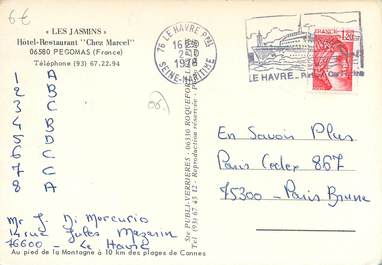 6€
« LES JASMINS »
Hôtel-Restaurant "Chez Marcel"
06580 PEGOMAS (France)
Téléphone (93) 67.22.94
1 A
2 B
3 C
4 B
5 D
6 C
7 C
8 A
(06)
Mr J. Di Mercurio
14 rue Jules Mazarin
76600 - Le Havre
Au pied de la Montagne à 10 km des plages de Cannes
Sté PUBLI-VERRIERES - 06330 ROQUEFORT
(93) 67 45 12 - Reproduction réservée
76 LE HAVRE PPAL
16 H
2-10
1978
SEINE-MARITIME
LE HAVRE
1,20
En Savoir Plus
Paris Cedex 867
75300 - Paris Brune